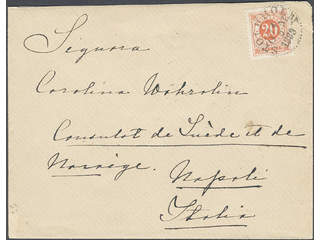 20
Signora
Carolina
Consulat de Suède et de
Norvège.
Napoli
Italia